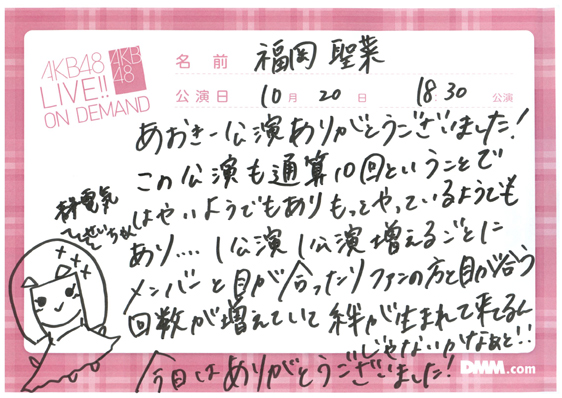 AKB48
LIVE!!
ON DEMAND
AKB
48
名前 福岡 聖菜
公演日 10月 20日 18:30 公演
あおきー公演ありがとうございました!
この公演も通算10回ということで
はやいようでもありもっとやっているようでも
あり....1公演1公演増えるごとに
メンバーと目が合ったりファンの方と目が合う
回数が増えていて絆が生まれて来てるん
じゃないかなぁと!!
今日はありがとうございました!
DMM.com